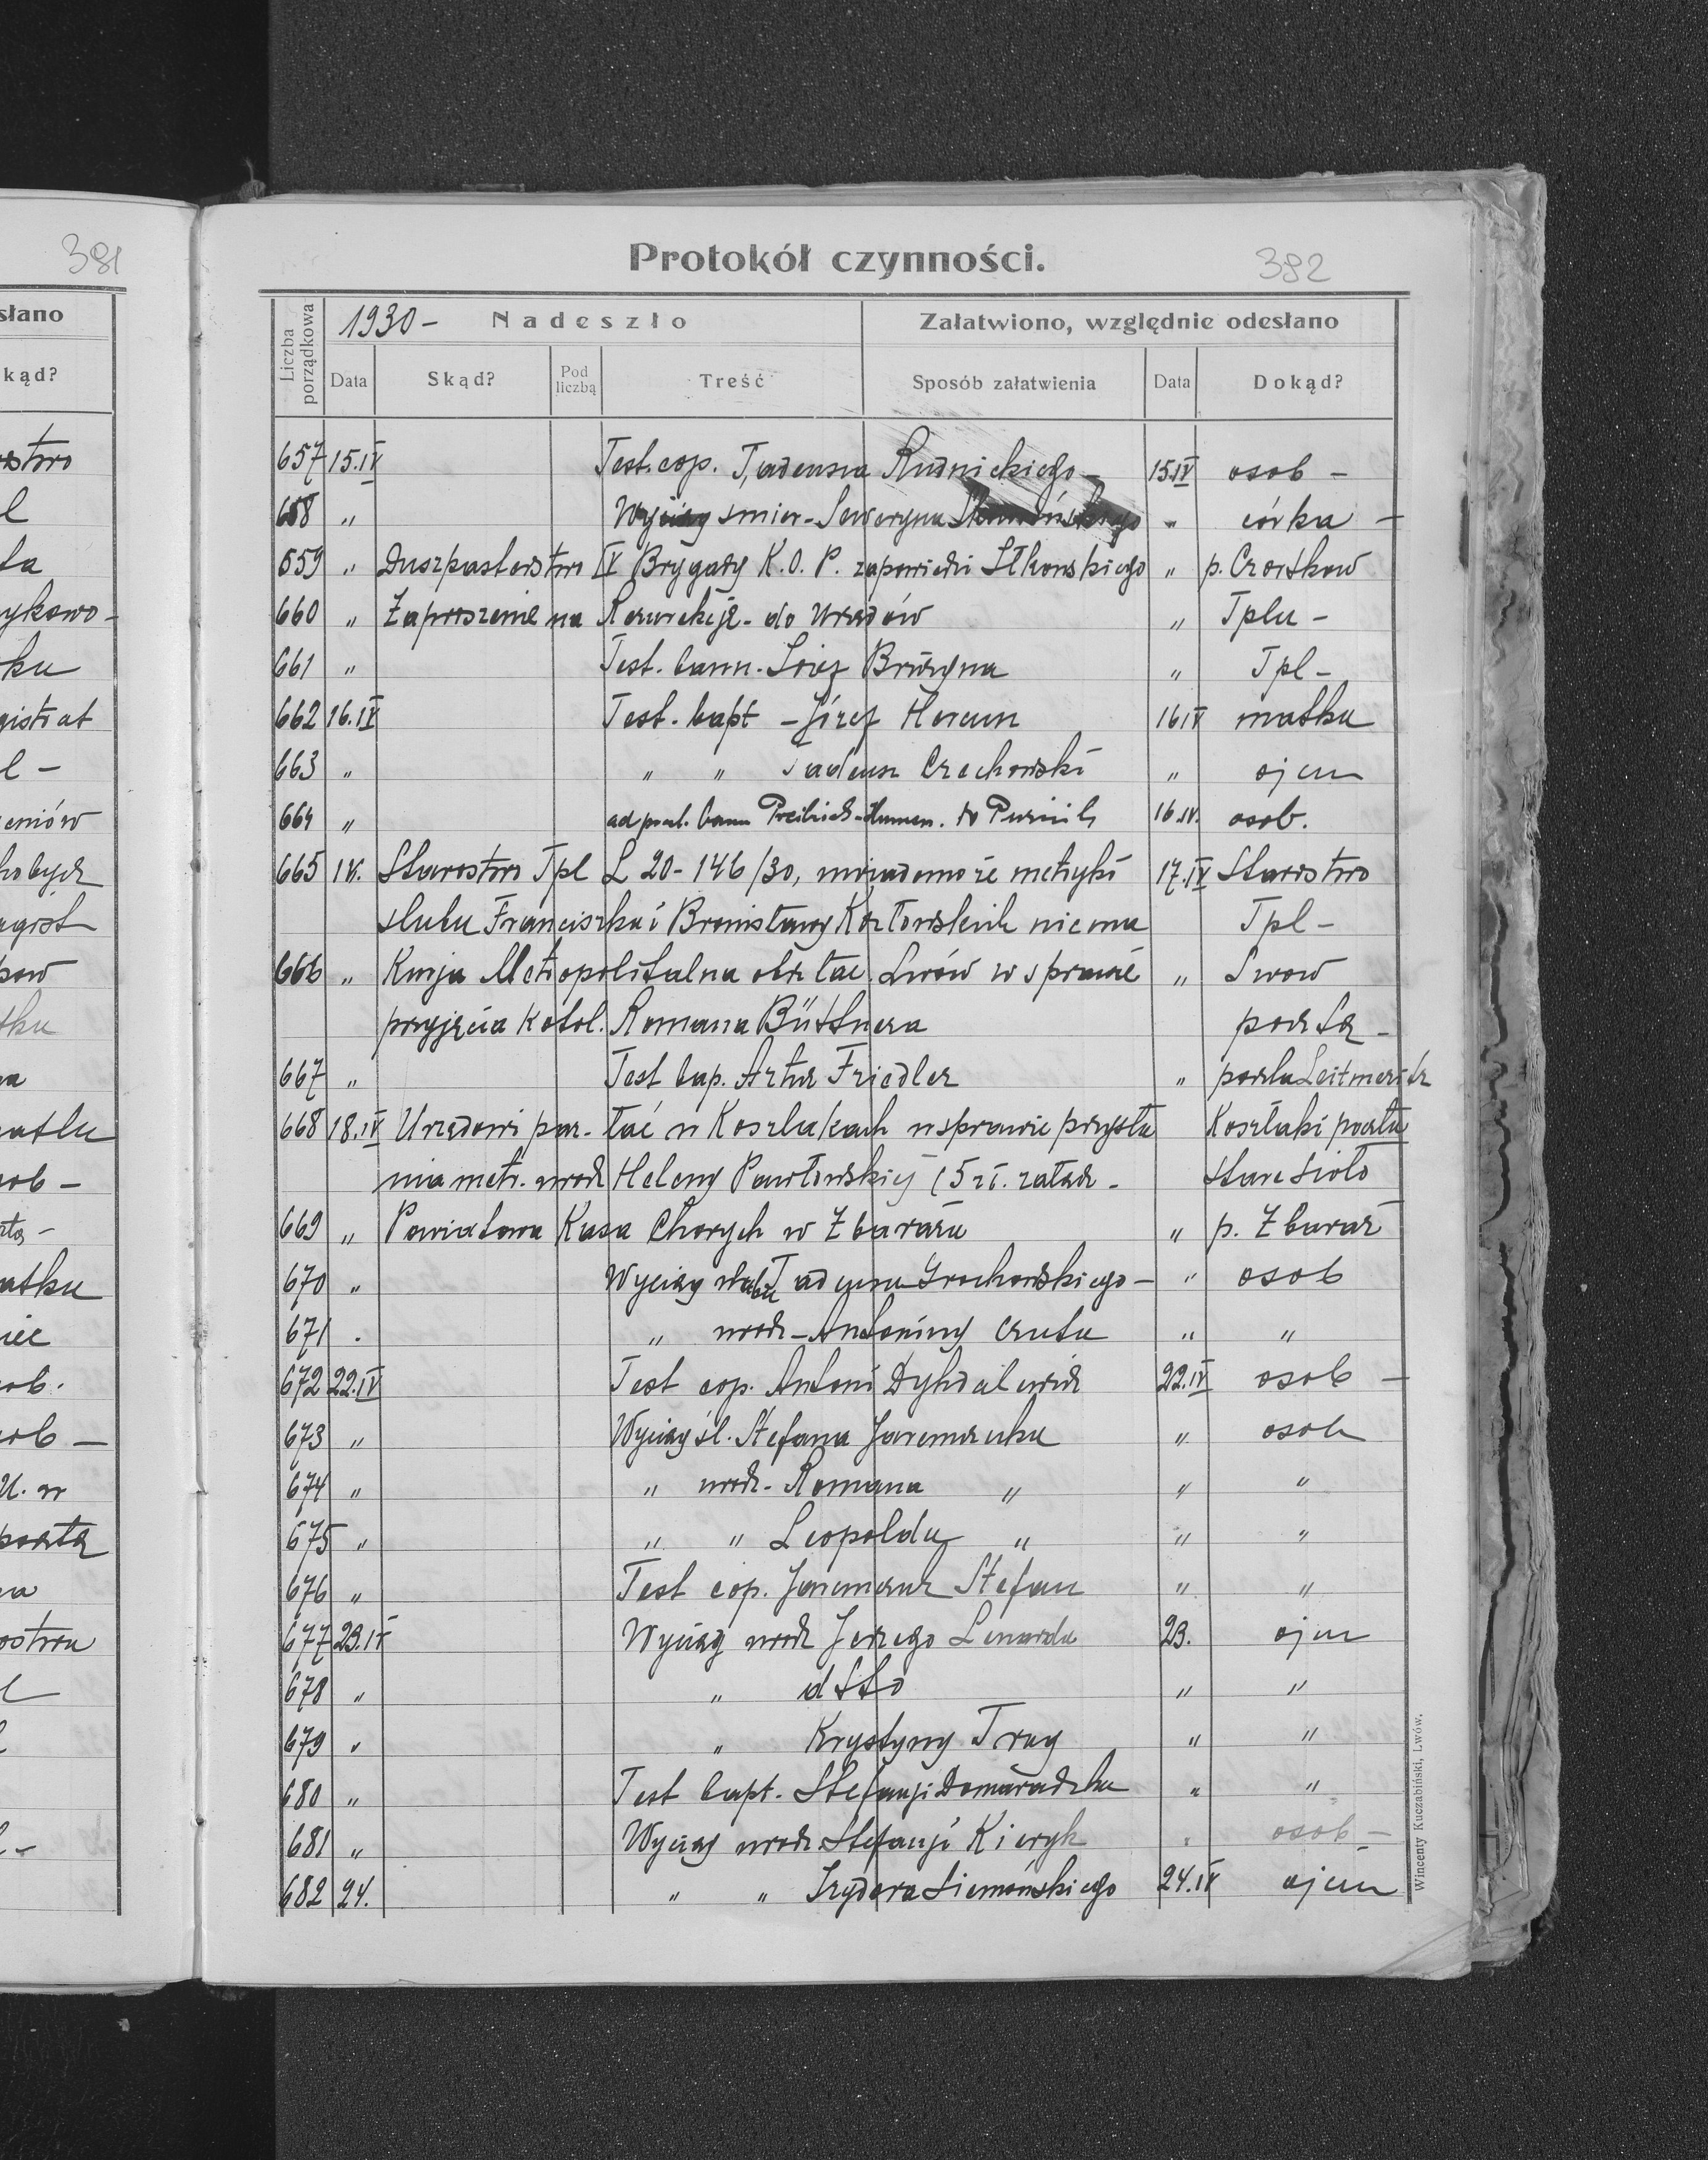 381
słano
kąd?
Protokół czynności.
382
Liczba porządkowa
1930 - Nadeszło
Załatwiono, względnie odesłano
Data Skąd? Pod liczbą Treść Sposób załatwienia Data Dokąd?
657 15.IV Test. cop. Tadeusza Rudnickiego - 15.IV osob -
658 " Wyciąg śmier - Seweryna " córka -
659 " Duszpasterstwo IV Brygady K.O.P. zapowiedzi " p. Czortkow
660 " Zaproszenie na Rezurekcję - do Urzędów " Tplu -
661 " Test. bann. " Tpl -
662 16.IV Test. bapt - Józef 16 IV matka
663 " " " Tadeusz Czechowski " ojcu
664 " 16.IV. osob.
665 IV. Starostwo Tpl L 20-146/30, metryki 17.IV Starostwo
ślubu Franciszka i Bronisławy Kozłowskich niema Tpl -
666 " Kurja Metropolitalna obrz łac. Lwów w sprawie " Lwow
przyjęcia Katol. Romana Büttnera pocztą -
667 " Test bap. Artur Friedler " poczta Leitmeritz
668 18.IV Urzędowi par. łać w Koszlakach w sprawie przysła Koszlaki poczta
nia metr. urodz Heleny Pawłowskiej (5 zł. załącz - Stare Sioło
669 " Powiatowa Kasa Chorych w Zbarażu " p. Zbaraż
670 " Wyciąg ślubu Tadeusza Grochowskiego - " osob
671 . " urodz - Antoniny Czuta " "
672 22.IV Test cop. Antoni Dyhdalewicz 22.IV osob -
673 " Wyciąg śl. Stefana Jaremczuka " osob
674 " " urodz. Romana " " "
675 " " " Leopolda " " "
676 " Test cop. Jaremczuk Stefan " "
677 23.IV Wyciąg urodz Jerzego Lenarda 23. ojcu
678 " " dtto " "
679 " " Krystyny Tray " "
680 " Test bapt. Stefanji Domaradzka " "
681 " Wyciąg urodz Stefanji Kieryk " osob -
682 24. " " Izydora Siemońskiego 24.IV ojcu
Wincenty Kuczabiński, Lwów.